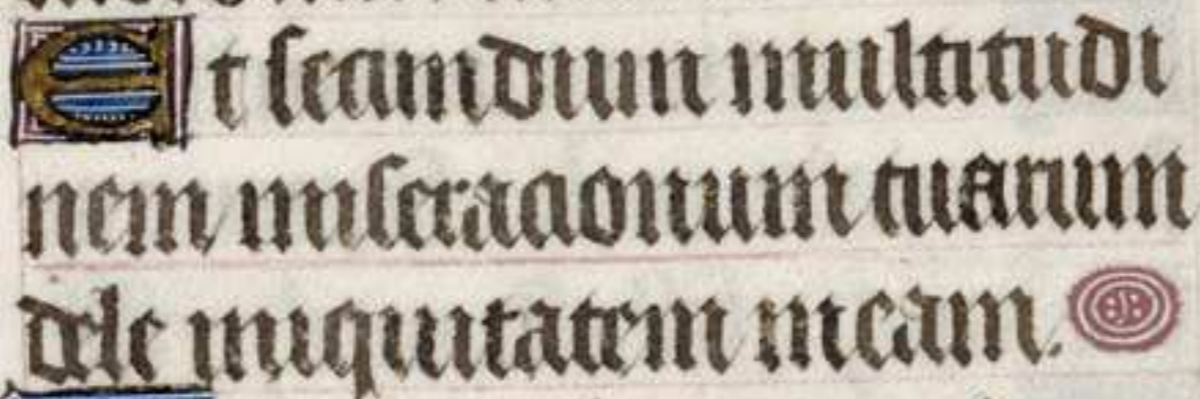 Et secundum multitudi
nem miseracionum tuarum
dele iniquitatem meam.